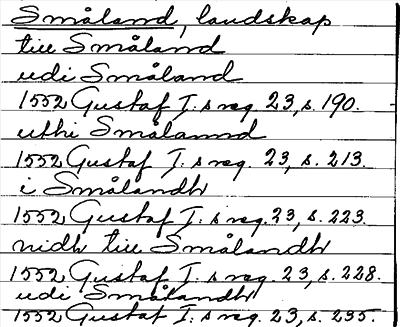 Småland, landskap
till Småland
udi Småland
1552 Gustaf I:s reg. 23, s. 190.
uthi Smålannd
1552 Gustaf I:s reg. 23, s. 213.
i Smålandh
1552 Gustaf I:s reg. 23, s. 223.
nidh till Smålandh
1552 Gustaf I:s reg. 23, s. 228.
udi Smålandh
1552 Gustaf I:s reg. 23, s. 235.